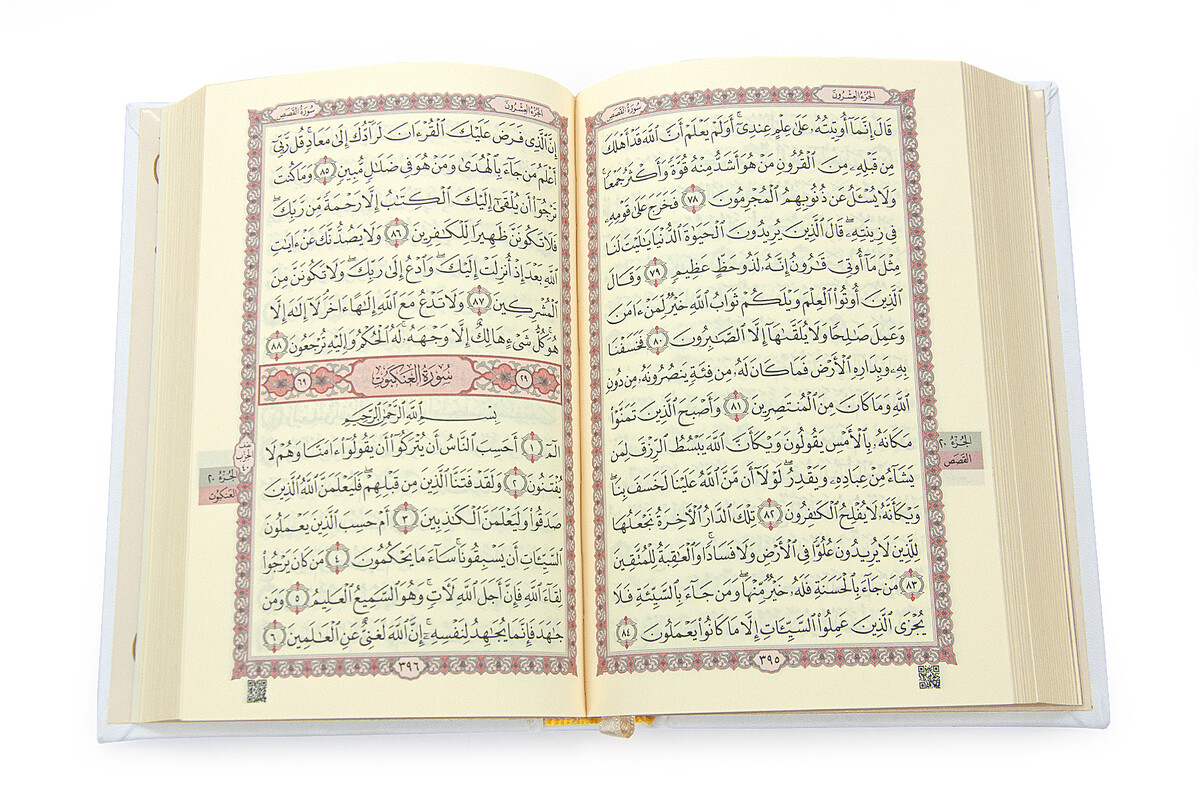 الجُزْءُ العِشْرُونَ
سُورَةُ القَصَصِ
قَالَ إِنَّمَآ أُوتِيتُهُۥ عَلَىٰ عِلْمٍ عِندِىٓ ۚ أَوَلَمْ يَعْلَمْ أَنَّ ٱللَّهَ قَدْ أَهْلَكَ
مِن قَبْلِهِۦ مِنَ ٱلْقُرُونِ مَنْ هُوَ أَشَدُّ مِنْهُ قُوَّةً وَأَكْثَرُ جَمْعًا ۚ
وَلَا يُسْـَٔلُ عَن ذُنُوبِهِمُ ٱلْمُجْرِمُونَ ٧٨ فَخَرَجَ عَلَىٰ قَوْمِهِۦ
فِى زِينَتِهِۦ ۖ قَالَ ٱلَّذِينَ يُرِيدُونَ ٱلْحَيَوٰةَ ٱلدُّنْيَا يَٰلَيْتَ لَنَا
مِثْلَ مَآ أُوتِىَ قَٰرُونُ إِنَّهُۥ لَذُو حَظٍّ عَظِيمٍ ٧٩ وَقَالَ
ٱلَّذِينَ أُوتُوا۟ ٱلْعِلْمَ وَيْلَكُمْ ثَوَابُ ٱللَّهِ خَيْرٌ لِّمَنْ ءَامَنَ
وَعَمِلَ صَٰلِحًا وَلَا يُلَقَّىٰهَآ إِلَّا ٱلصَّٰبِرُونَ ٨٠ فَخَسَفْنَا
بِهِۦ وَبِدَارِهِ ٱلْأَرْضَ فَمَا كَانَ لَهُۥ مِن فِئَةٍ يَنصُرُونَهُۥ مِن دُونِ
ٱللَّهِ وَمَا كَانَ مِنَ ٱلْمُنتَصِرِينَ ٨١ وَأَصْبَحَ ٱلَّذِينَ تَمَنَّوْا۟
مَكَانَهُۥ بِٱلْأَمْسِ يَقُولُونَ وَيْكَأَنَّ ٱللَّهَ يَبْسُطُ ٱلرِّزْقَ لِمَن
يَشَآءُ مِنْ عِبَادِهِۦ وَيَقْدِرُ ۖ لَوْلَآ أَن مَّنَّ ٱللَّهُ عَلَيْنَا لَخَسَفَ بِنَا ۖ
وَيْكَأَنَّهُۥ لَا يُفْلِحُ ٱلْكَٰفِرُونَ ٨٢ تِلْكَ ٱلدَّارُ ٱلْءَاخِرَةُ نَجْعَلُهَا
لِلَّذِينَ لَا يُرِيدُونَ عُلُوًّا فِى ٱلْأَرْضِ وَلَا فَسَادًا ۚ وَٱلْعَٰقِبَةُ لِلْمُتَّقِينَ
٨٣ مَن جَآءَ بِٱلْحَسَنَةِ فَلَهُۥ خَيْرٌ مِّنْهَا ۖ وَمَن جَآءَ بِٱلسَّيِّئَةِ فَلَا
يُجْزَى ٱلَّذِينَ عَمِلُوا۟ ٱلسَّيِّـَٔاتِ إِلَّا مَا كَانُوا۟ يَعْمَلُونَ ٨٤
٣٩٥
الجُزْءُ ٢٠
القَصَص
الجُزْءُ العِشْرُونَ
سُورَةُ القَصَصِ
إِنَّ ٱلَّذِى فَرَضَ عَلَيْكَ ٱلْقُرْءَانَ لَرَآدُّكَ إِلَىٰ مَعَادٍ ۚ قُل رَّبِّىٓ
أَعْلَمُ مَن جَآءَ بِٱلْهُدَىٰ وَمَنْ هُوَ فِى ضَلَٰلٍ مُّبِينٍ ٨٥ وَمَا كُنتَ
تَرْجُوٓا۟ أَن يُلْقَىٰٓ إِلَيْكَ ٱلْكِتَٰبُ إِلَّا رَحْمَةً مِّن رَّبِّكَ ۖ
فَلَا تَكُونَنَّ ظَهِيرًا لِّلْكَٰفِرِينَ ٨٦ وَلَا يَصُدُّنَّكَ عَنْ ءَايَٰتِ
ٱللَّهِ بَعْدَ إِذْ أُنزِلَتْ إِلَيْكَ ۖ وَٱدْعُ إِلَىٰ رَبِّكَ ۖ وَلَا تَكُونَنَّ مِنَ
ٱلْمُشْرِكِينَ ٨٧ وَلَا تَدْعُ مَعَ ٱللَّهِ إِلَٰهًا ءَاخَرَ ۘ لَآ إِلَٰهَ إِلَّا
هُوَ ۚ كُلُّ شَىْءٍ هَالِكٌ إِلَّا وَجْهَهُۥ ۚ لَهُ ٱلْحُكْمُ وَإِلَيْهِ تُرْجَعُونَ ٨٨
٢٩ سُورَةُ العَنكَبُوتِ ٦٩
بِسْمِ ٱللَّهِ ٱلرَّحْمَٰنِ ٱلرَّحِيمِ
الٓمٓ ١ أَحَسِبَ ٱلنَّاسُ أَن يُتْرَكُوٓا۟ أَن يَقُولُوٓا۟ ءَامَنَّا وَهُمْ لَا
يُفْتَنُونَ ٢ وَلَقَدْ فَتَنَّا ٱلَّذِينَ مِن قَبْلِهِمْ ۖ فَلَيَعْلَمَنَّ ٱللَّهُ ٱلَّذِينَ
صَدَقُوا۟ وَلَيَعْلَمَنَّ ٱلْكَٰذِبِينَ ٣ أَمْ حَسِبَ ٱلَّذِينَ يَعْمَلُونَ
ٱلسَّيِّـَٔاتِ أَن يَسْبِقُونَا ۚ سَآءَ مَا يَحْكُمُونَ ٤ مَن كَانَ يَرْجُوا۟
لِقَآءَ ٱللَّهِ فَإِنَّ أَجَلَ ٱللَّهِ لَءَاتٍ ۚ وَهُوَ ٱلسَّمِيعُ ٱلْعَلِيمُ ٥ وَمَن
جَٰهَدَ فَإِنَّمَا يُجَٰهِدُ لِنَفْسِهِۦٓ ۚ إِنَّ ٱللَّهَ لَغَنِىٌّ عَنِ ٱلْعَٰلَمِينَ ٦
٣٩٦
الحِزْب
٤٠
الجُزْءُ ٢٠
العَنكَبُوت